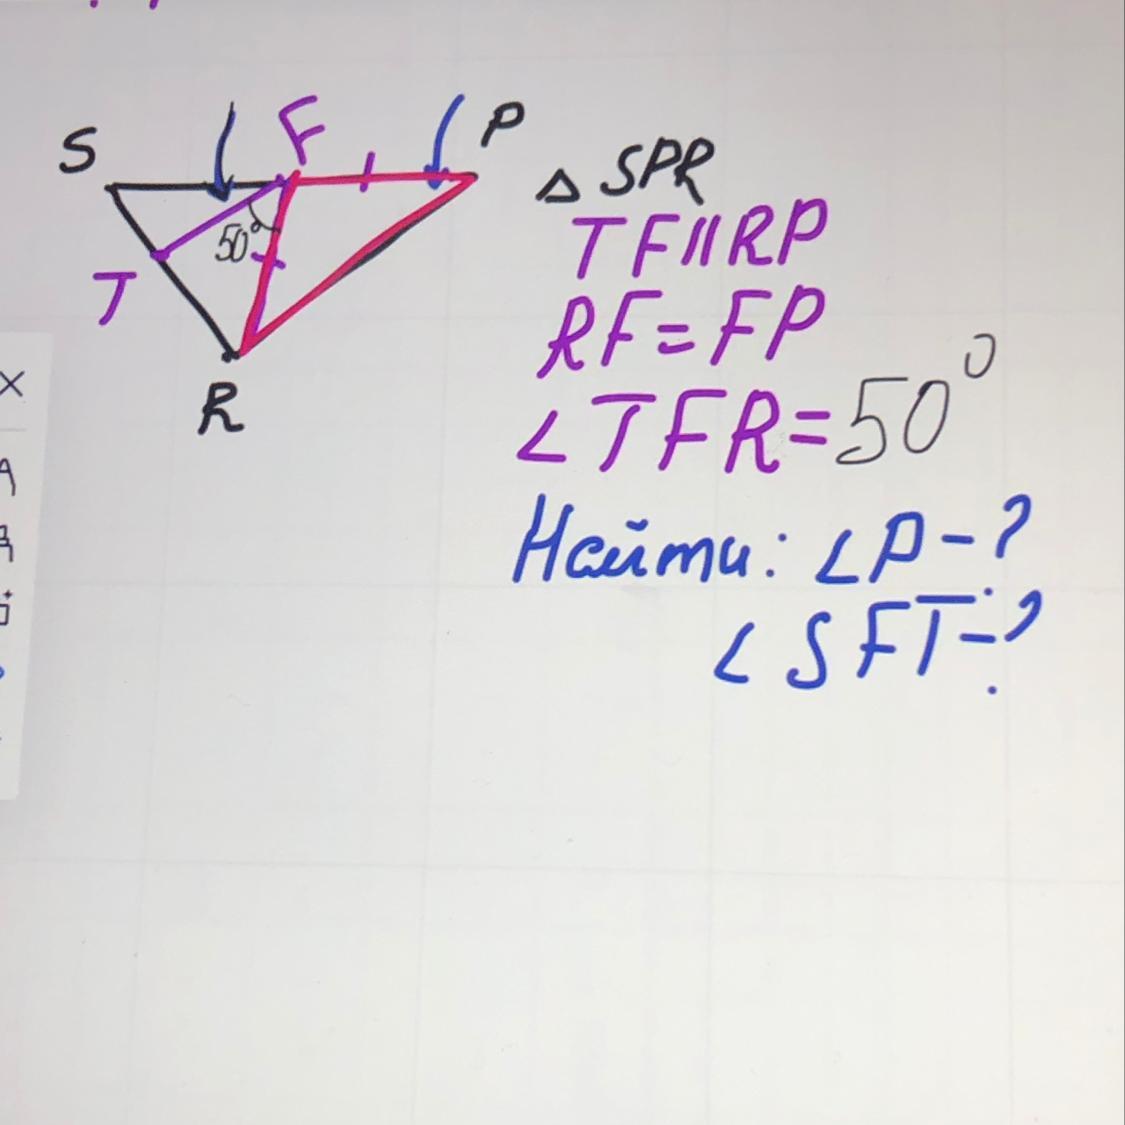 S
F
P
50°
T
R
△ SPR
TF||RP
RF=FP
∠TFR=50°
Найти: ∠P-?
∠SFT-?